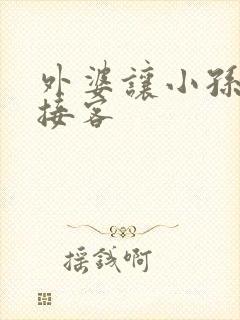 外婆讓小孫
接客
搖錢啊